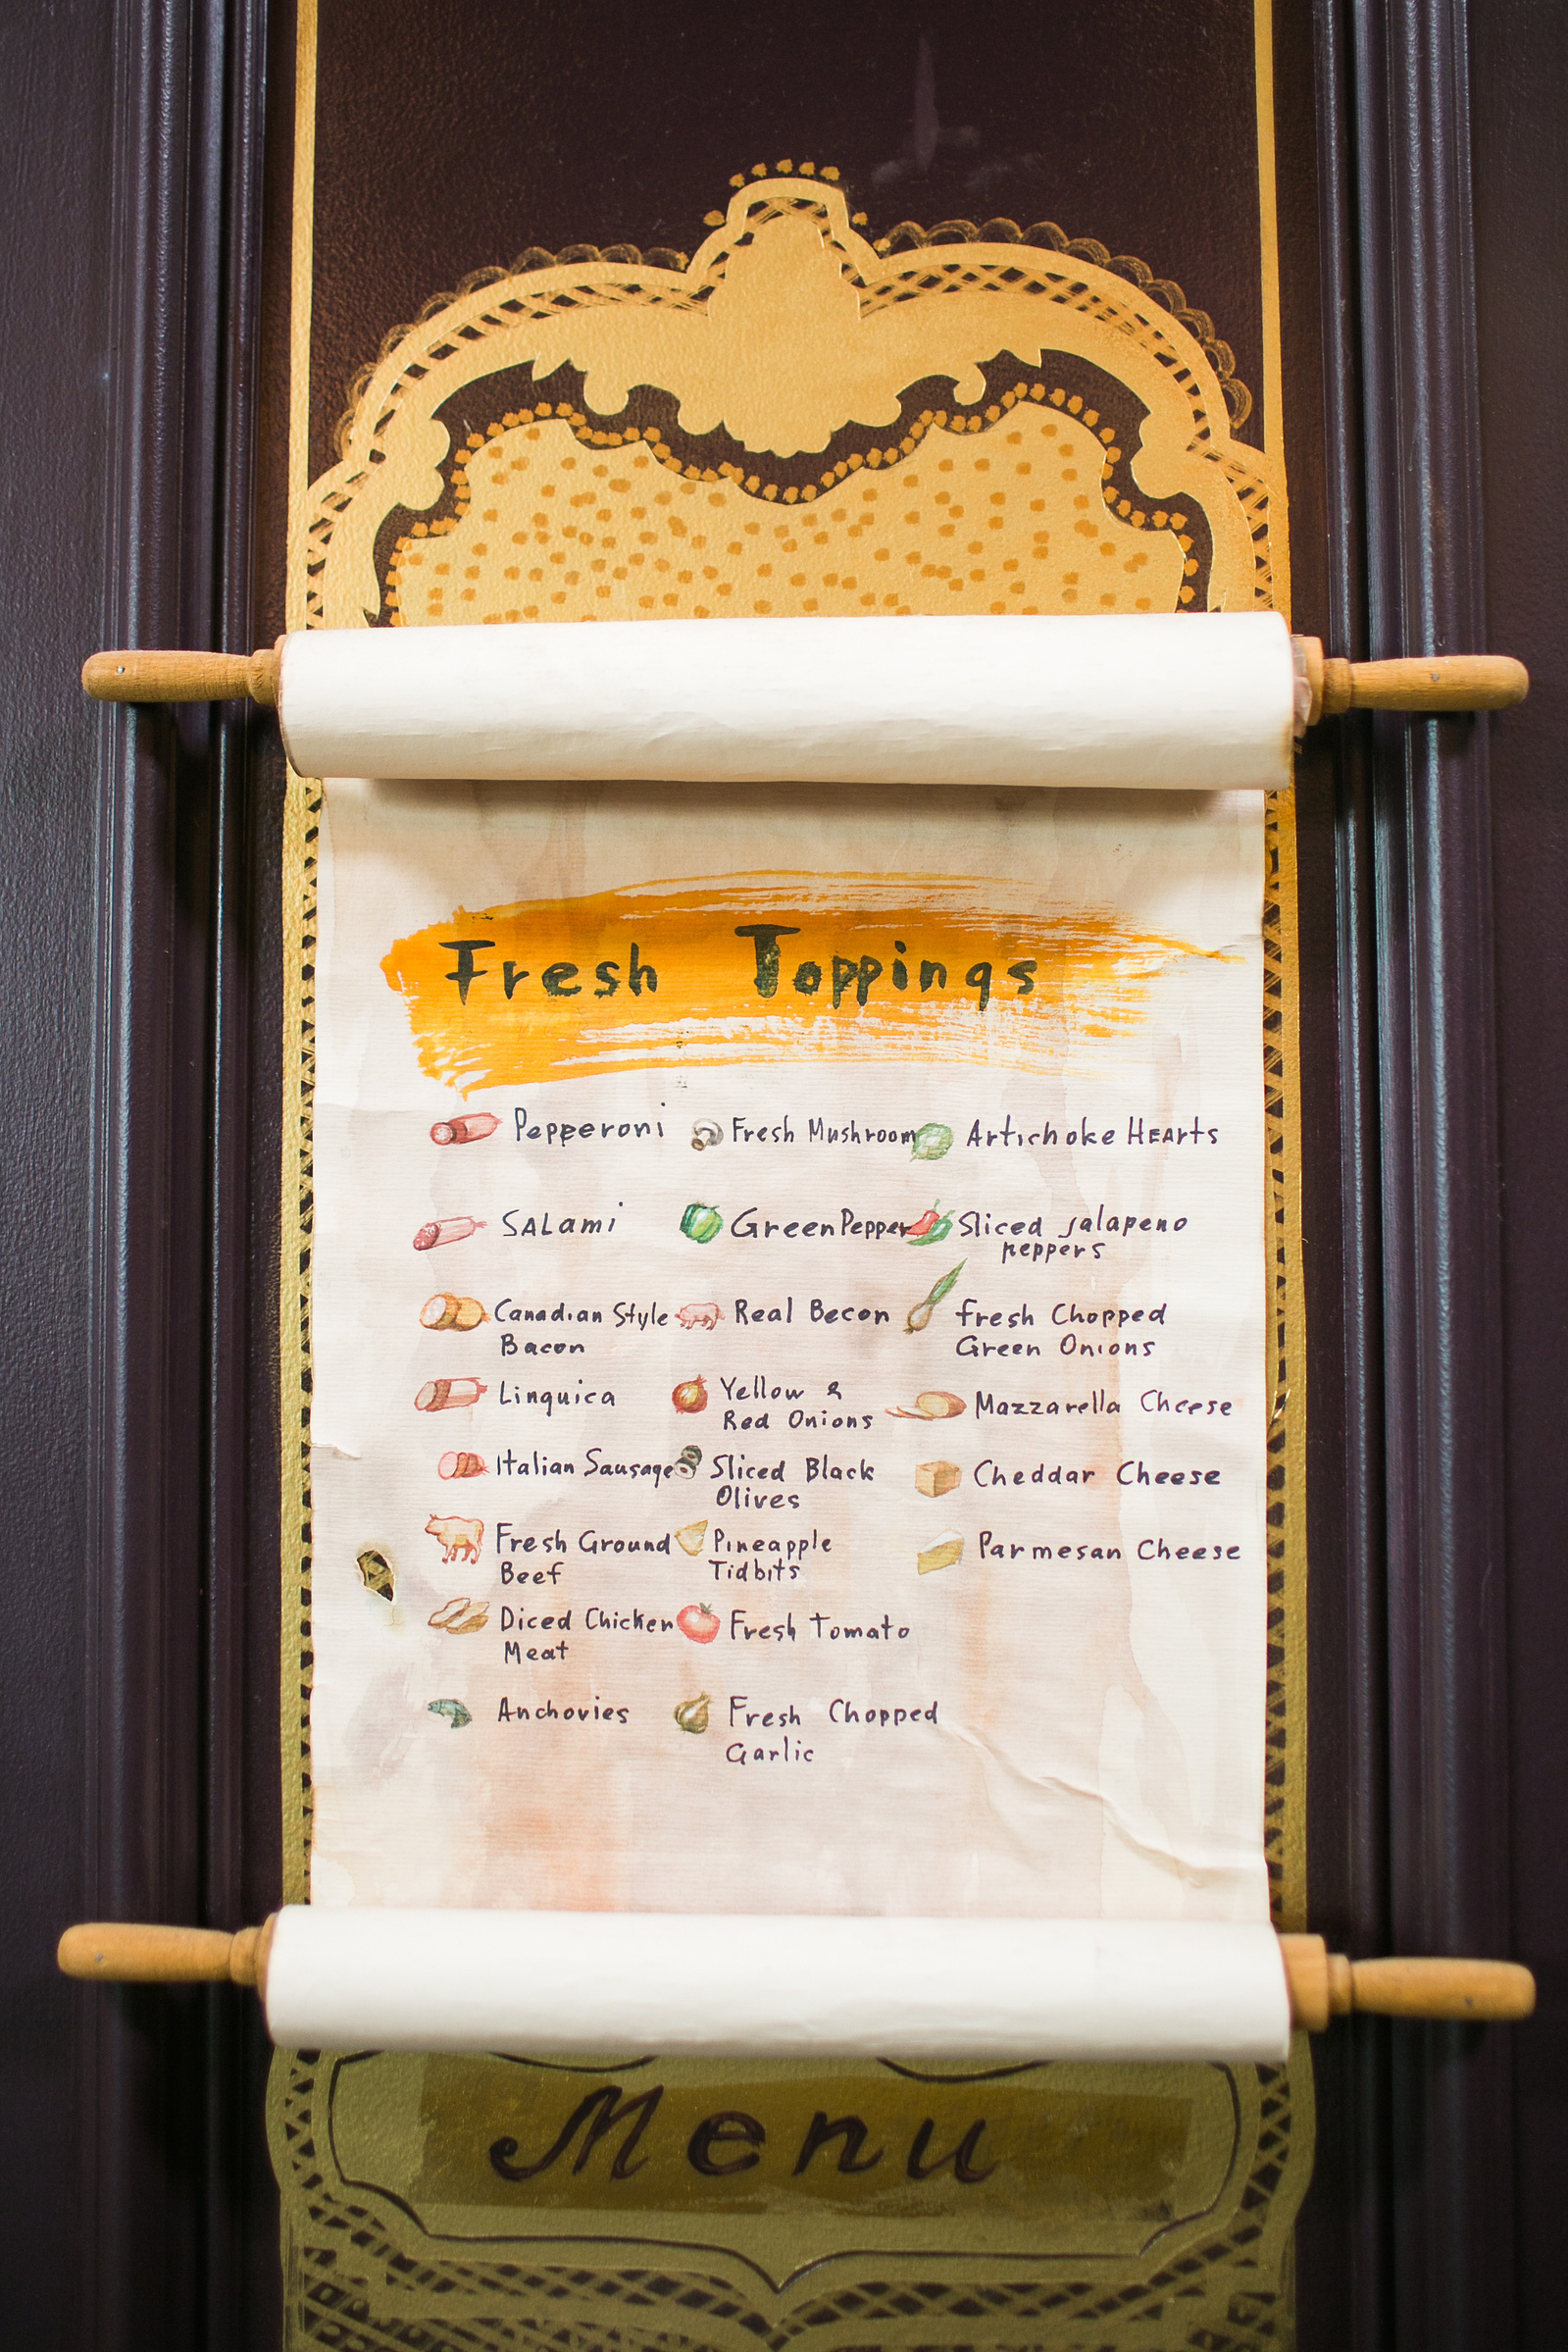 Fresh Toppings
Pepperoni
SALami
Canadian Style
Bacon
Linguica
Italian Sausage
Fresh Ground
Beef
Diced Chicken
Meat
Anchovies
Fresh Mushroom
Green Pepper
Real Becon
Yellow &
Red Onions
Sliced Black
Olives
Pineapple
Tidbits
Fresh Tomato
Fresh Chopped
Garlic
Artichoke HEArts
Sliced jalapeno
peppers
fresh Chopped
Green Onions
Mazzarella Cheese
Cheddar Cheese
Parmesan Cheese
Menu